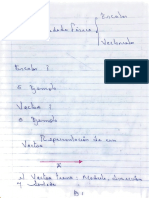 Escalar
Cantidades Físicas
Vectorial
Escalar :
Ejemplo
Vector :
Ejemplo
Representación de un
Vector
El Vector tiene : Modulo, dirección
y sentido